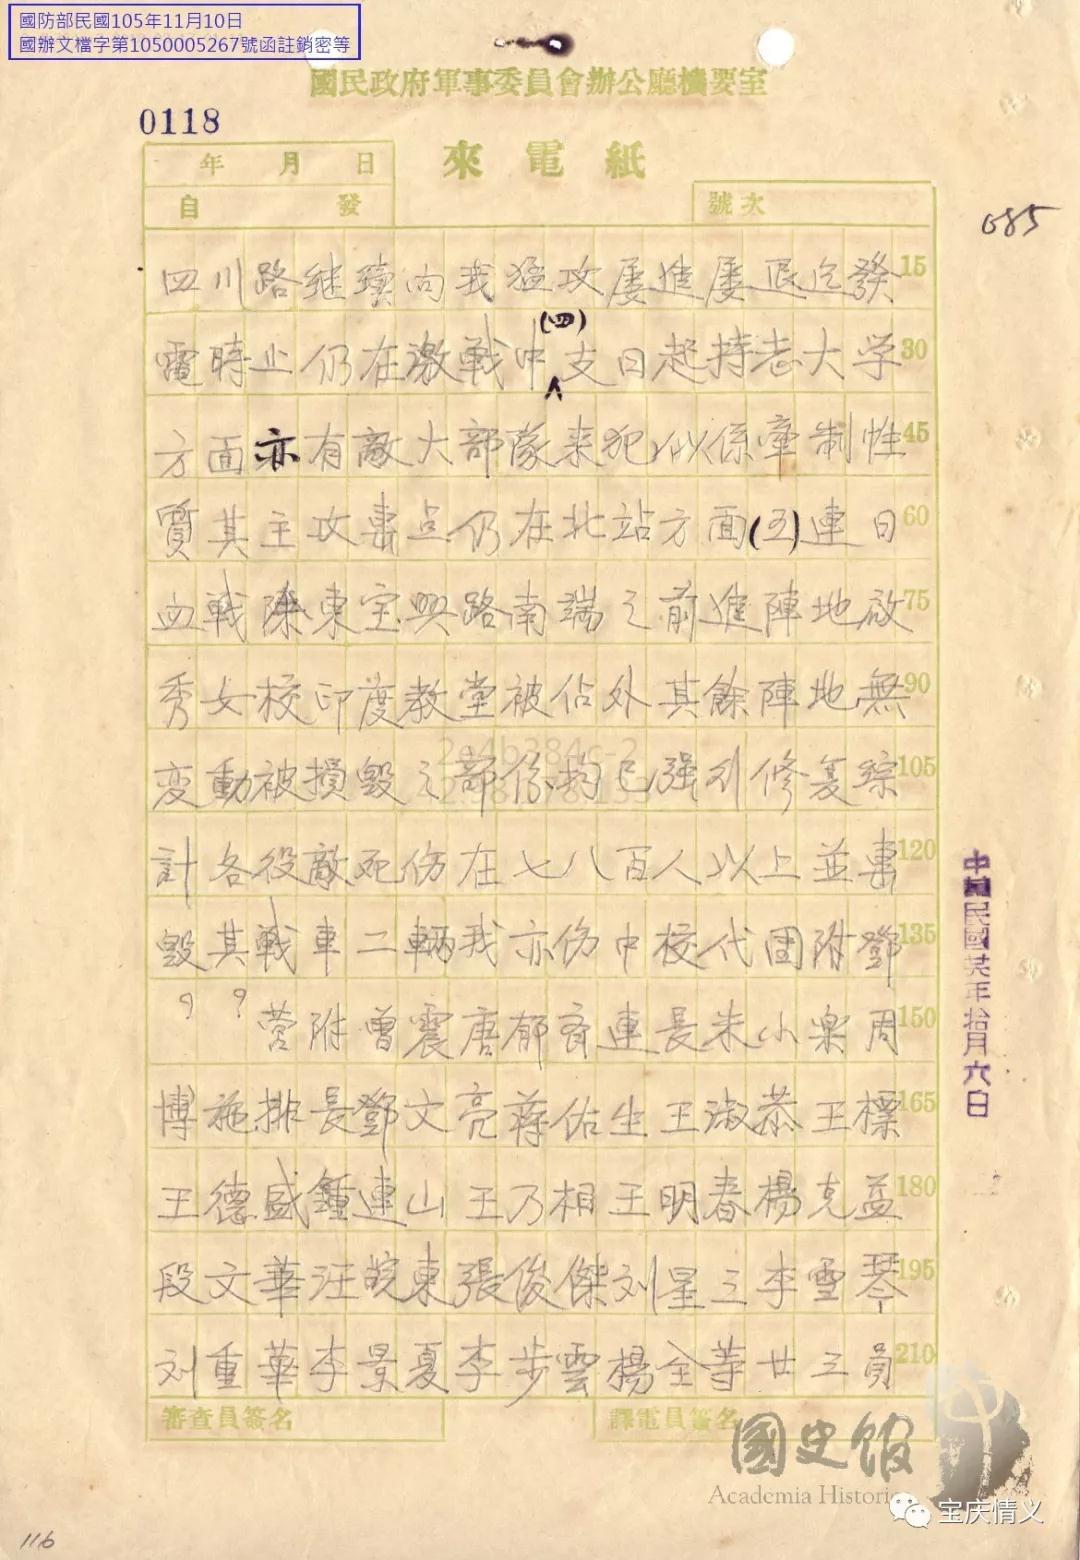 國防部民國105年11月10日
國辦文檔字第1050005267號函註銷密等
國民政府軍事委員會辦公廳機要室
0118
來電紙
年 月 日
自 發
號次
085
四川路继續向我猛攻屡進屡退迄發 15
電時止仍在激戰中(四)支日起持志大学 30
方面亦有敵大部隊来犯似係牽制性 45
質其主攻重点仍在北站方面(五)連日 60
血戰除東宝興路南端之前進陣地啟 75
秀女校印度教堂被佔外其餘陣地無 90
变動被損毀之部份均已強行修复綜 105
計各役敵死伤在七八百人以上並 120
毀其戰車二輛我亦伤中校代团附鄧 135
? ? 营附曾震唐郁斉連長朱小樂周 150
博施排長鄧文亮蒋佑生王淑恭王標 165
王德盛鍾連山王乃相王明春楊克益 180
段文華汪皖東張俊傑刘星三李雪琴 195
刘重華李景夏李步雲楊全等廿三員 210
審查員簽名
譯電員簽名
中華民國廿六年拾月六日
2e4b384c-2
國史館
Academia Historica
宝庆情义
116